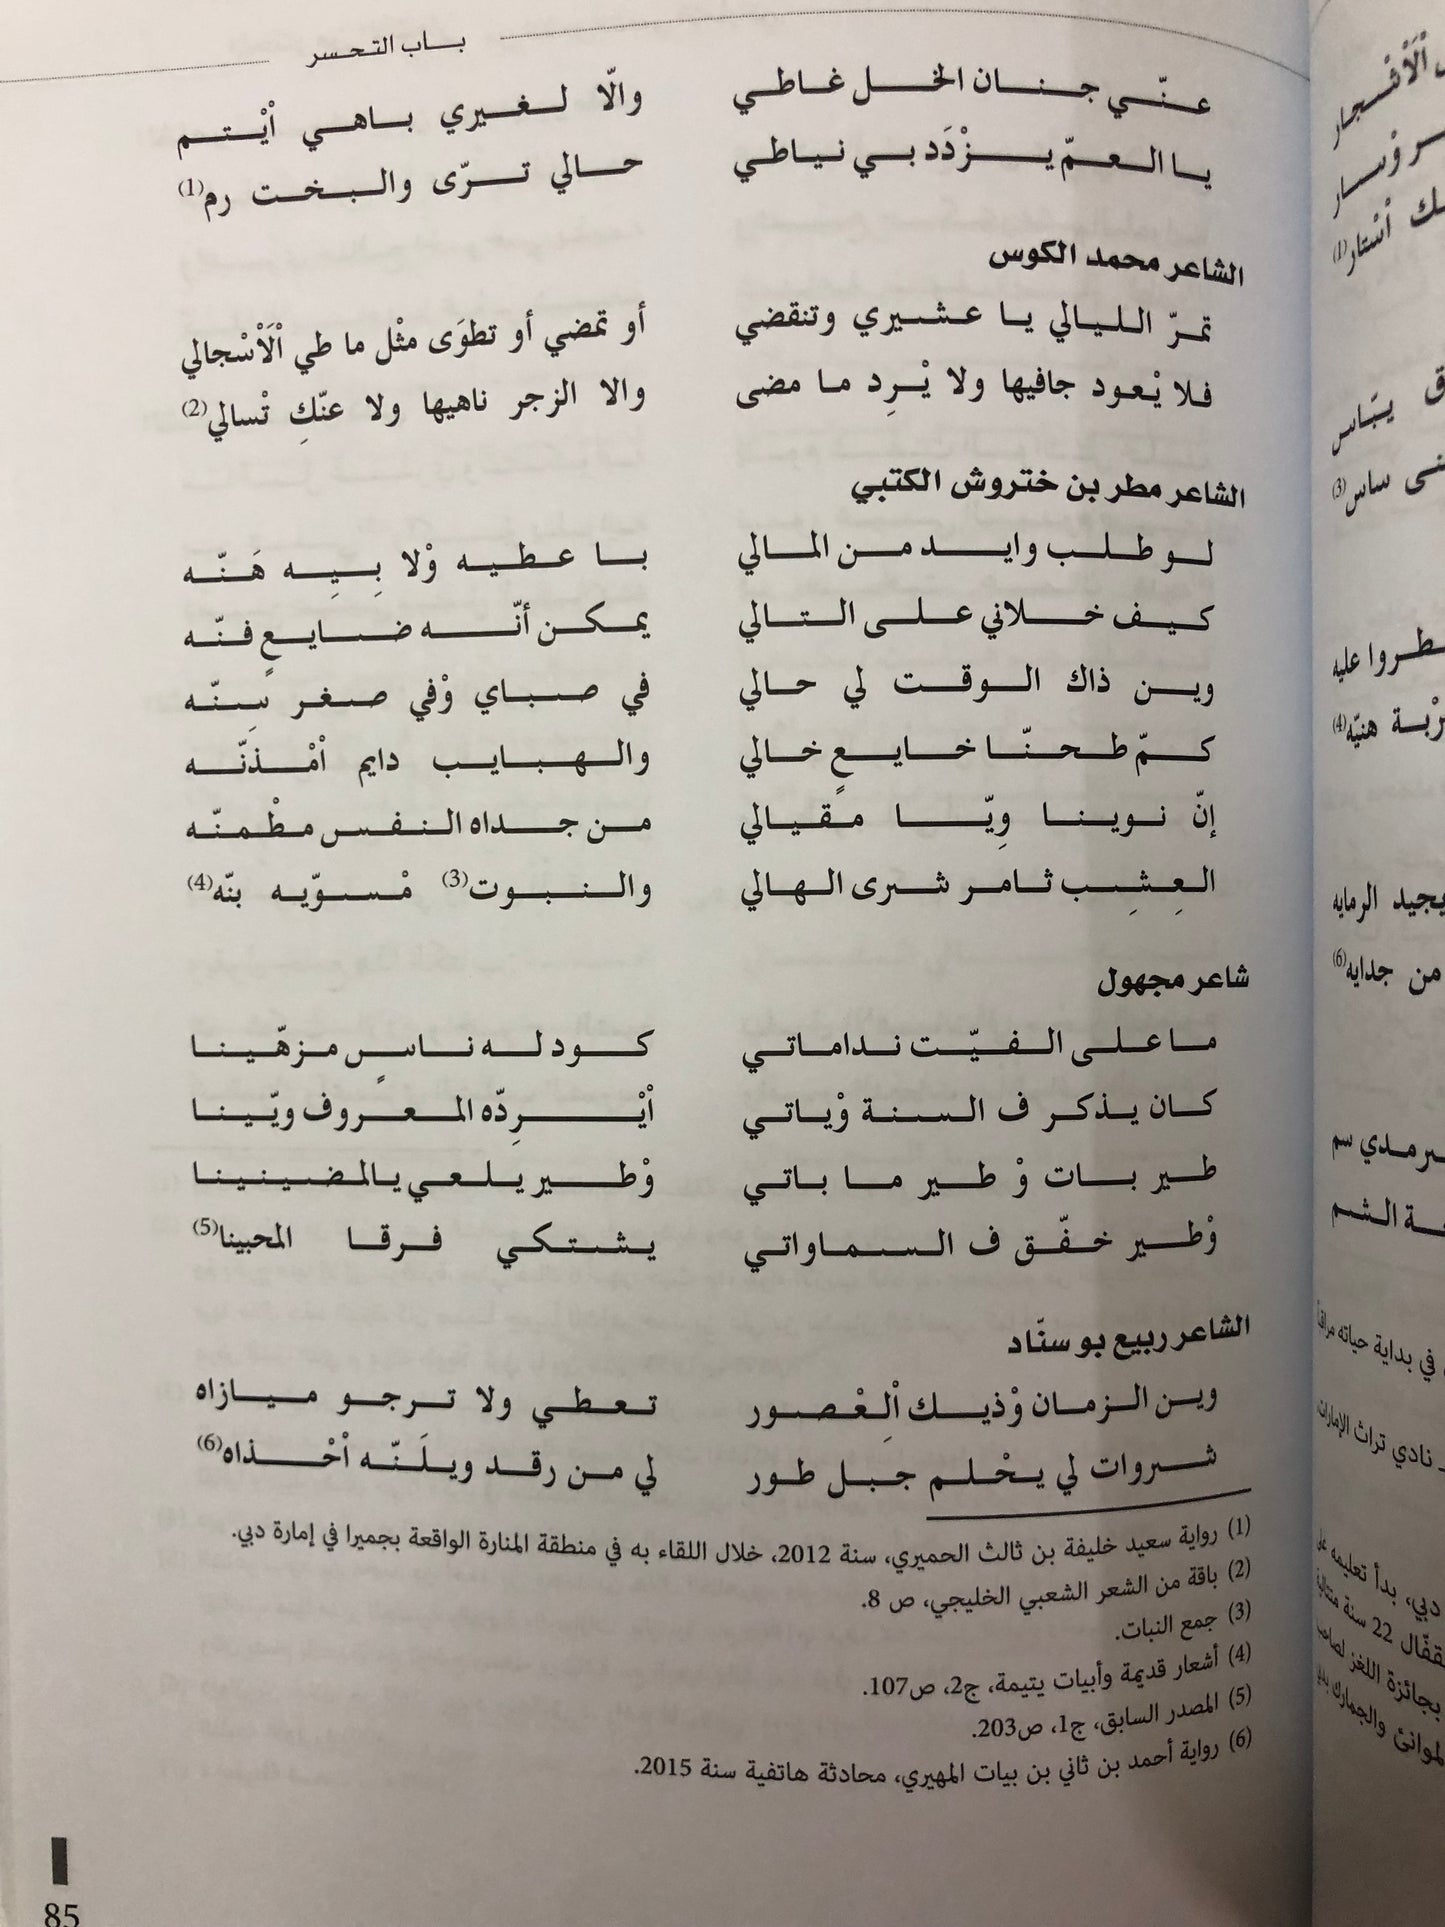 باب التحسر
عنّي جنان الخل غاطي والّا لغيري باهي اْيْتم
يا العمّ يزْدَد بي نياطي حالي ترّى والبخت رم(1)
الشاعر محمد الكوس
تمرّ الليالي يا عشيري وتنقضي أو تمضي أو تطوَى مثْل ما طي اْلَاْسْجالي
فلا يْعود جافيها ولا يْرِد ما مضى والا الزجر ناهيها ولا عنّكِ تْسالي(2)
الشاعر مطر بن ختروش الكتبي
لو طلب وايد من المالي با عطيه وْلا بِيِه هَنّه
كيف خلاني على التالي يمكن أنّه ضايعٍ فنّه
وين ذاك الوقت لي حالي في صباي وْفي صغر سِنّه
كمّ طحنّا خايعٍ خالي والهبايب دايم اْمْذنّه
إنّ نوينا وِيّا مقيالي من جداه النفس مطْمنّه
العِشِب ثامر شرى الهالي والنبوت(3) مْسوّيه بنّه(4)
شاعر مجهول
ما على الفيّت نداماتي كود له ناسٍ مزهّينا
كان يذكر ف السنة وْياتي اْيْرِدّه المعروف ويّينا
طير بات وْ طير ما باتي وْطير يلعي يالمضينينا
وْطير خفّق ف السماواتي يشتكي فرقا المحبينا(5)
الشاعر ربيع بو سنّاد
وين الزمان وْذيك اْلِعْصور تعطي ولا ترجو ميازاه
شروات لي يحْلم جبل طور لي من رقد ويلَنّه اْحْذاه(6)
(1) رواية سعيد خليفة بن ثالث الحميري، سنة 2012، خلال اللقاء به في منطقة المنارة الواقعة بجميرا في إمارة دبي.
(2) باقة من الشعر الشعبي الخليجي، ص 8.
(3) جمع النبات.
(4) أشعار قديمة وأبيات يتيمة، ج2، ص107.
(5) المصدر السابق، ج1، ص203.
(6) رواية أحمد بن ثاني بن بيات المهيري، محادثة هاتفية سنة 2015.
85
يبّاس
ساس(3)
عليه
هنيّه(4)
يجيد الرمايه
من جدايه(6)
سم
الشم
في بداية حياته
نادي تراث الإمارات
دبي، بدأ تعليمه
22 سنة
بجائزة اللغز